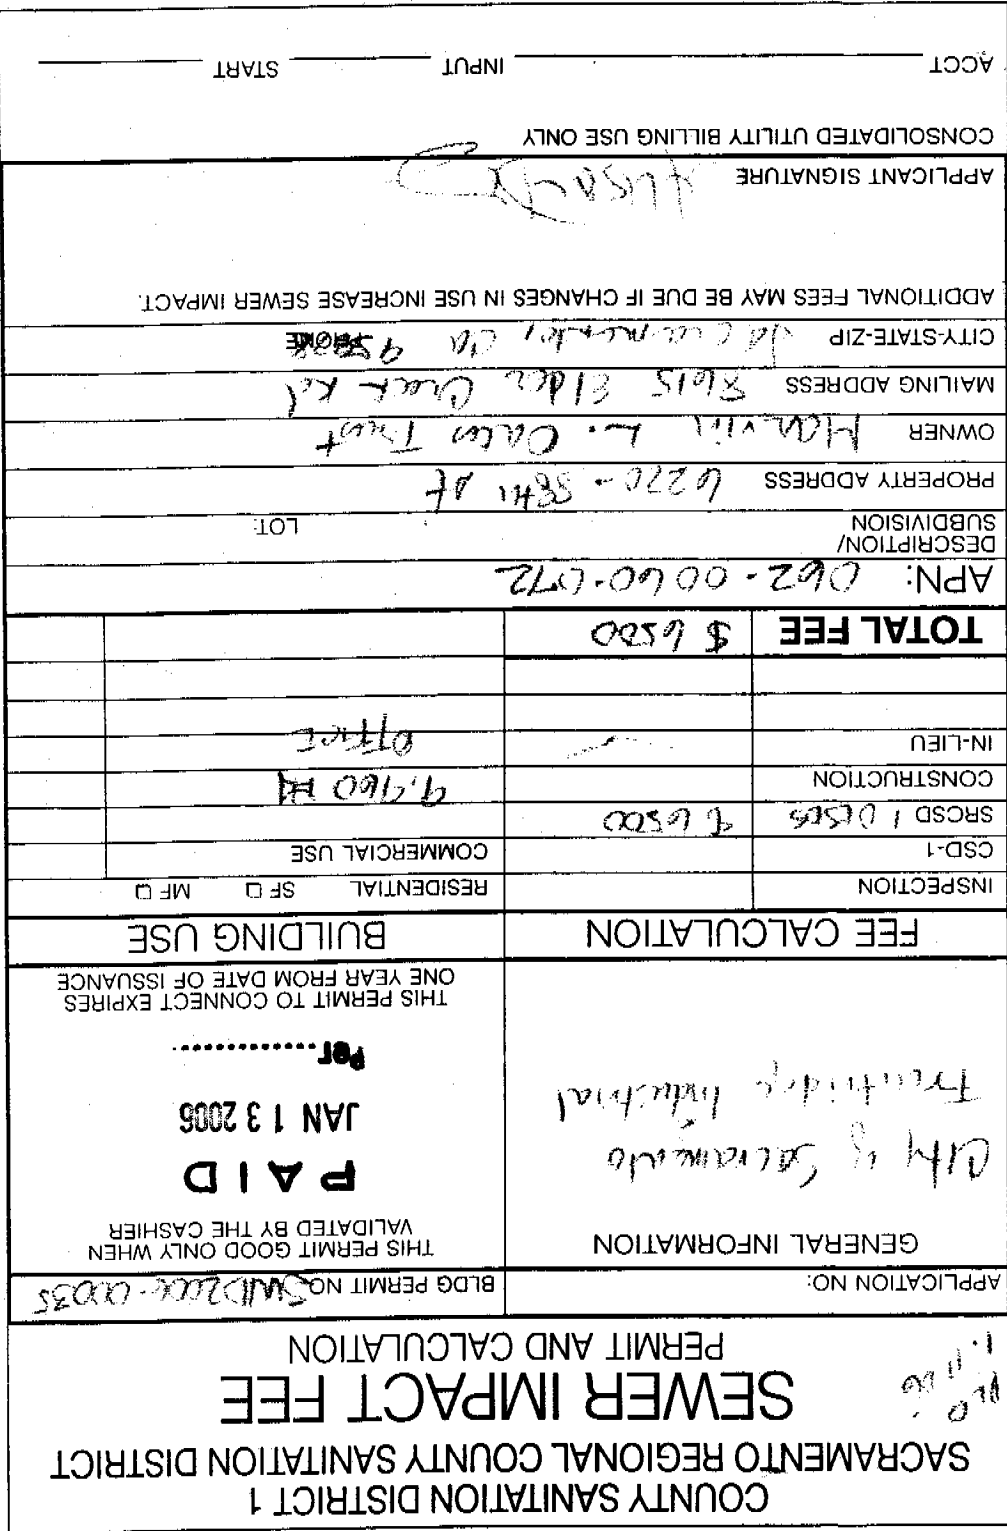 COUNTY SANITATION DISTRICT 1
SACRAMENTO REGIONAL COUNTY SANITATION DISTRICT
SEWER IMPACT FEE
PERMIT AND CALCULATION
APPLICATION NO:
BLDG PERMIT NO
GENERAL INFORMATION
City of Sacramento
Fruitridge Industrial
THIS PERMIT GOOD ONLY WHEN
VALIDATED BY THE CASHIER
PAID
JAN 13 2006
Per
THIS PERMIT TO CONNECT EXPIRES
ONE YEAR FROM DATE OF ISSUANCE
FEE CALCULATION
BUILDING USE
INSPECTION
RESIDENTIAL SF MF
CSD-1
COMMERCIAL USE
SRCSD 1
6500
CONSTRUCTION
IN-LIEU
OFFICE
TOTAL FEE $ 6500
APN: 062-0060-072
DESCRIPTION/
SUBDIVISION
LOT:
PROPERTY ADDRESS 6220 - 88TH St
OWNER Marvin L. Oates Trust
MAILING ADDRESS 8615 Elder Creek Rd
CITY-STATE-ZIP Sacramento, CA
PHONE
ADDITIONAL FEES MAY BE DUE IF CHANGES IN USE INCREASE SEWER IMPACT.
APPLICANT SIGNATURE
CONSOLIDATED UTILITY BILLING USE ONLY
ACCT INPUT START